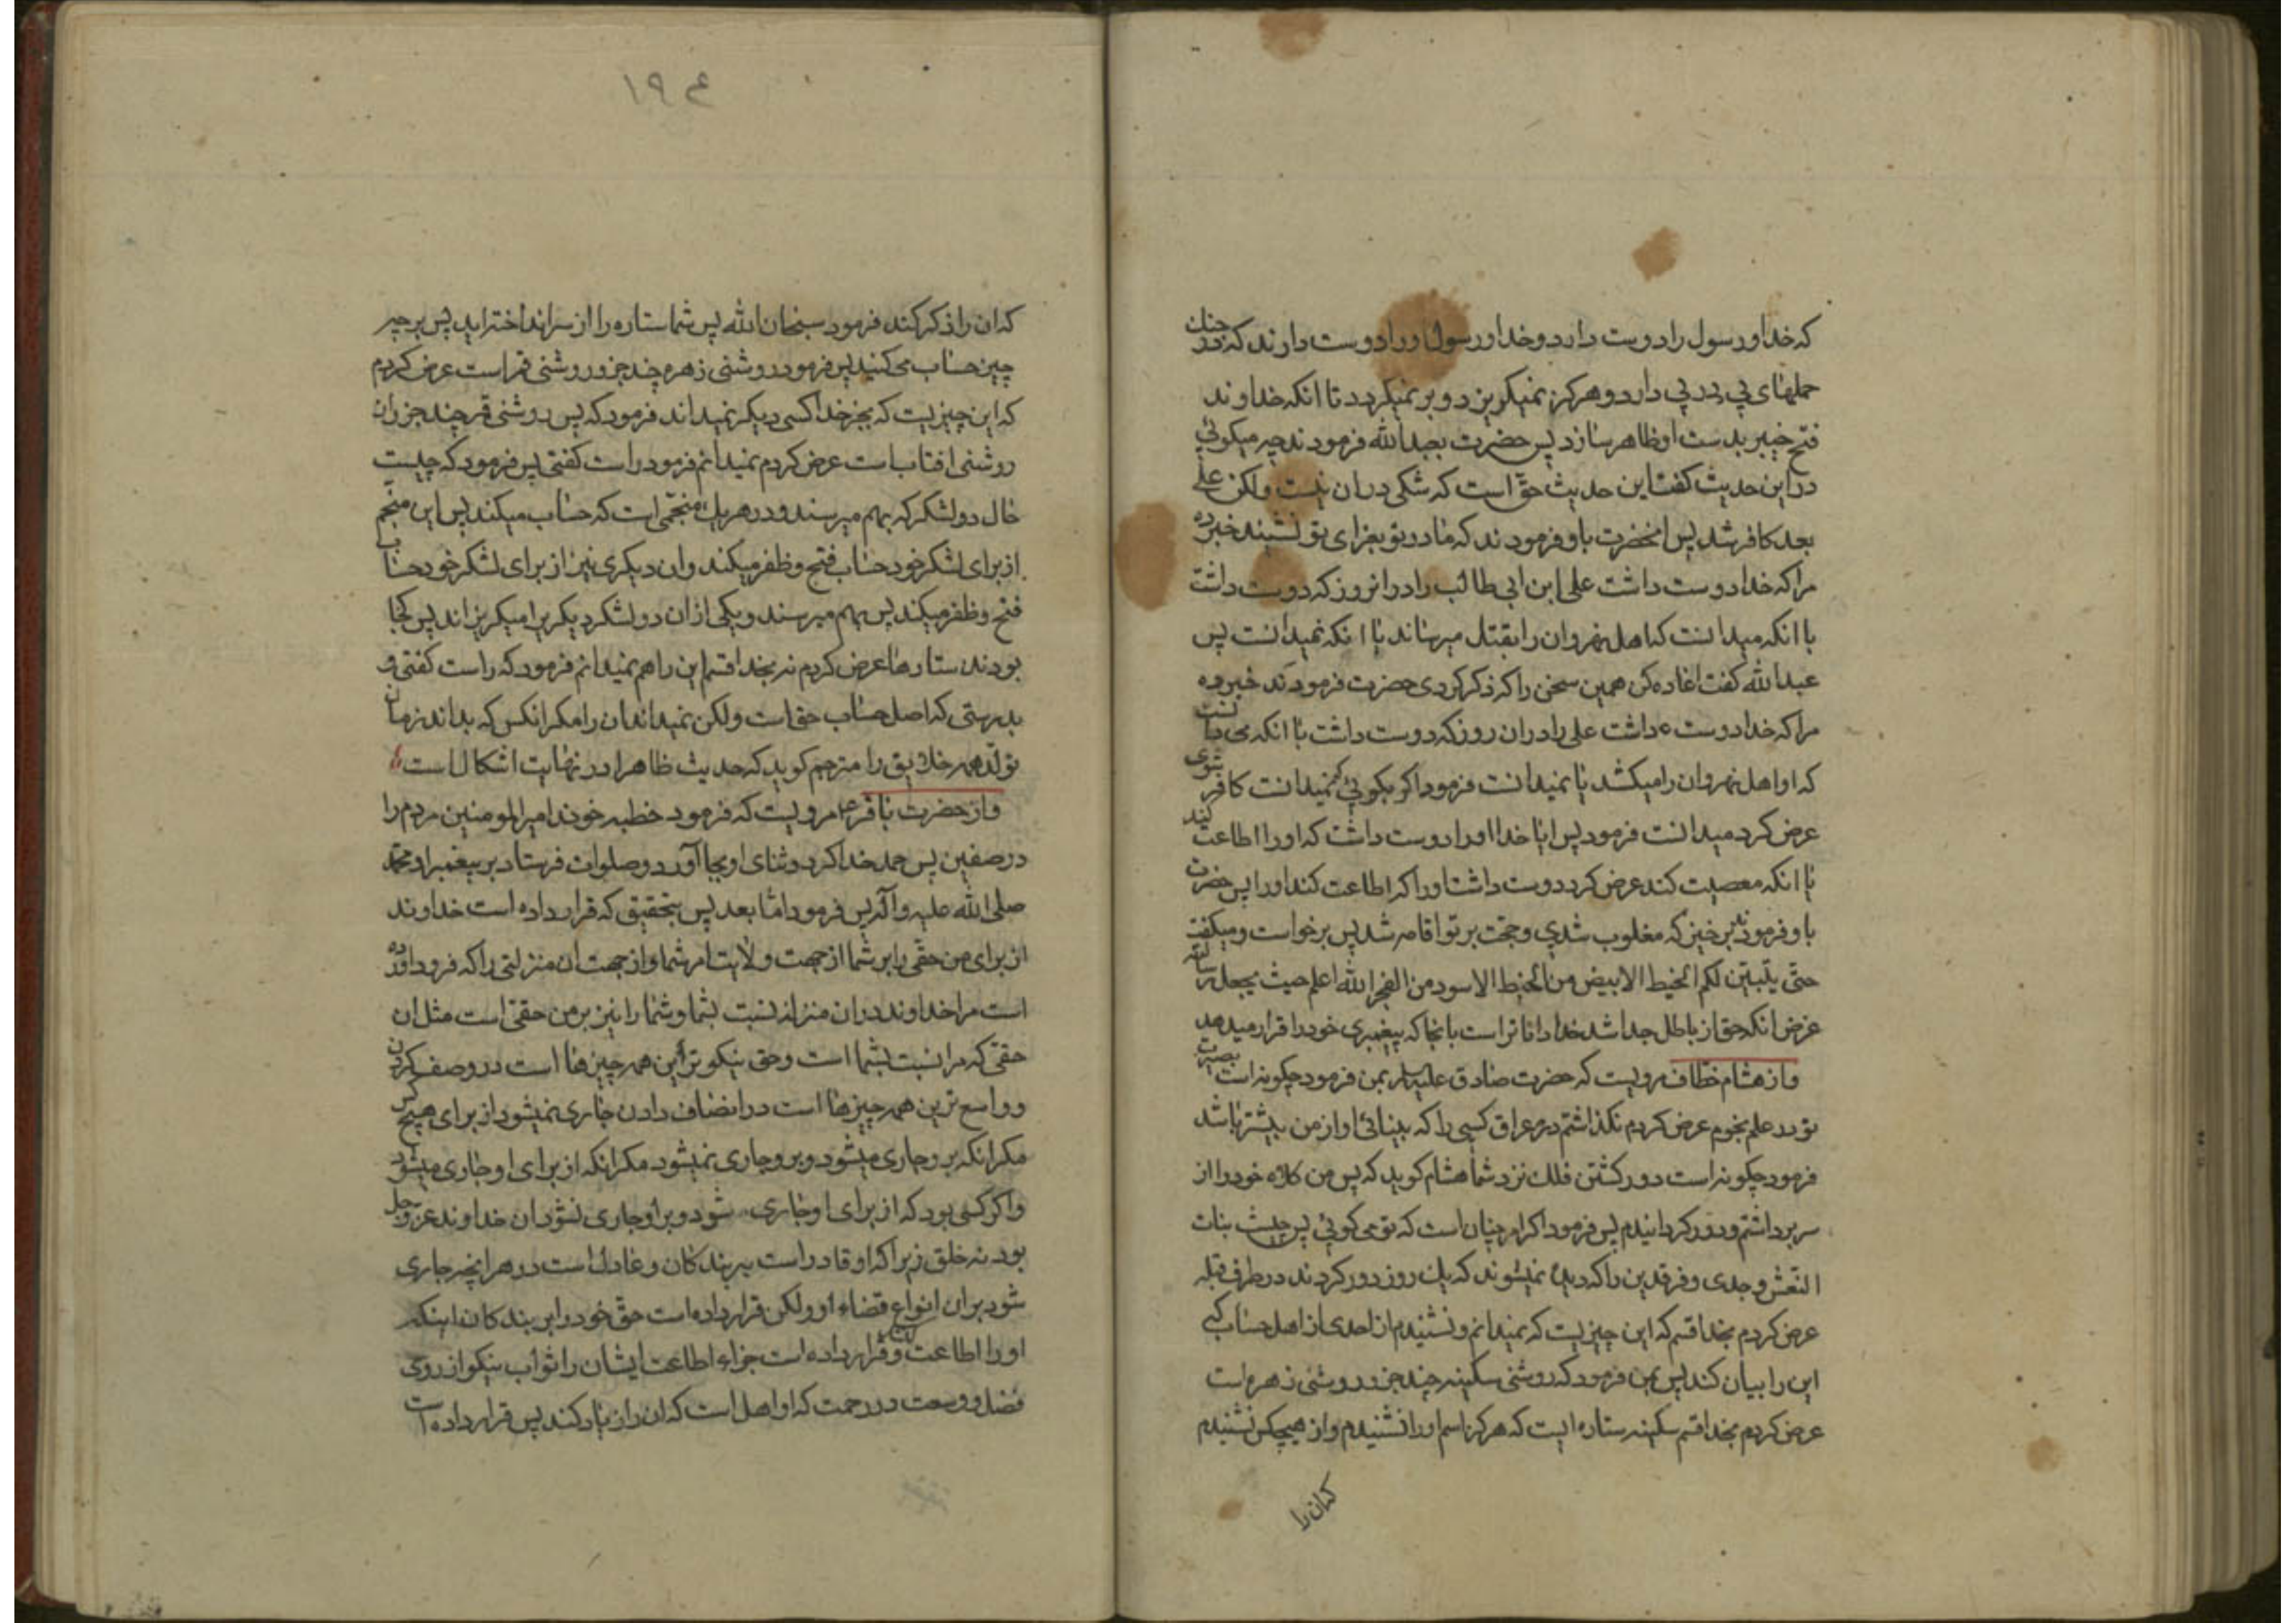 که خدا و رسول را دوست دارد و خدا و رسول او را دوست دارند که در جنك
حملهای پی در پی دارد و هرکز نمیکریزد و بر نمیکردد تا انکه خداوند
فتح خیبر بدست او ظاهر سازد پس حضرت بعبدالله فرمودند چه میکوئی
در این حدیث کفت این حدیث حق است که شکی در ان نیست ولکن علی
بعد کافر شد پس انحضرت باو فرمودند که مادر تو بعزای تو نشیند خبر ده
مرا که خدا دوست داشت علی ابن ابی طالب را در انروز که دوست داشت
با انکه میدانست که اهل نهروان را بقتل میرساند یا انکه نمیدانست پس
عبدالله کفت اعاده کن همین سخن را که ذکر کردی حضرت فرمودند خبر ده
مرا که خدا دوست داشت علی را در ان روز که دوست داشت با انکه می دانست
که او اهل نهروان را میکشد یا نمیدانست فرمود اکر بکوئی نمیدانست کافر شوی
عرض کرد میدانست فرمود پس ایا خدا او را دوست داشت که او را اطاعت کند
یا انکه معصیت کند عرض کرد دوست داشت او را که اطاعت کند او را پس حضرت
باو فرمودند برخیز که مغلوب شدی و حجت بر تو اقامه شد پس برخواست و میکفت
حتی یتبین لکم الخیط الابیض من الخیط الاسود من الفجر الله اعلم حیث یجعل رسالته
غرض انکه حق از باطل جدا شد خدا داناتر است بانجا که پیغمبری خود را قرار میدهد
و از هشام خفاف مرویست که حضرت صادق علیه السلام بمن فرمود چکونه است بصیرت
تو در علم نجوم عرض کردم نکذاشتم در عراق کسی را که بینائی او از من بیشتر باشد
فرمود چکونه است دور کشتن فلك نزد شما هشام کوید که پس من کلاه خود را از
سر برداشتم و دور کردانیدم پس فرمود اکر امر چنان است که تو می کوئی پس چیست بنات
النعش و جدی و فرقدین را که دیده نمیشوند که یك روز دور کردند در طرف قبله
عرض کردم بخدا قسم که این چیزیست که نمیدانم و نشنیدم از احدی از اهل حساب کسی
این را بیان کند پس بمن فرمود که روشنی سکینه چند جزو روشنی زهره است
عرض کردم بخدا قسم سکینه ستاره ایست که هرکز اسم او را نشنیدم و از هیچکس نشنیدم
که ان را
۱۹۴
که ان را ذکر کند فرمود سبحان الله پس شما ستاره را از سر انداخته اید پس بر چه
چیز حساب می کنید پس فرمود روشنی زهره چند جزو روشنی قمر است عرض کردم
که این چیزیست که بجز خدا کسی دیکر نمیداند فرمود که پس روشنی قمر چند جزو ان
روشنی افتاب است عرض کردم نمیدانم فرمود راست کفتی پس فرمود که چیست
حال دو لشکر که بهم میرسند و در هر یك منجمی است که حساب میکند پس این منجم
از برای لشکر خود حساب فتح و ظفر میکند و ان دیکری نیز از برای لشکر خود حساب
فتح و ظفر میکند پس بهم میرسند و یکی از ان دو لشکر دیکری را میکریزاند پس کجا
بودند ستارها عرض کردم نه بخدا قسم این را هم نمیدانم فرمود که راست کفتی و
بدرستی که اصل حساب حق است ولکن نمیداند ان را مکر انکس که بداند زمان
تولد همه خلایق را مترجم کوید که حدیث ظاهرا در نهایت اشکال است
و از حضرت باقر ع مرویست که فرمود خطبه خوند امیرالمومنین مردم را
در صفین پس حمد خدا کرد و ثنای او بجا آورد و صلوات فرستاد بر پیغمبر او محمد
صلی الله علیه و آله پس فرمود اما بعد پس بتحقیق که قرار داده است خداوند
از برای من حقی را بر شما از جهت ولایت امر شما و از جهت ان منزلتی را که فرود اورده
است مرا خداوند در ان منزله نسبت بشما و شما را نیز بر من حقی است مثل ان
حقی که مرا نسبت بشما است و حق نیکو ترین همه چیزها است در وصف کردن
و واسع ترین همه چیزها است در انصاف دادن جاری نمیشود از برای هیچ کس
مکر انکه بر و جاری میشود و بر و جاری نمیشود مکر انکه از برای او جاری میشود
و اکر کسی بود که از برای او جاری شود و بر او جاری نشود ان خداوند عز و جل
بود نه خلق زیرا که او قادر است بر بندکان و عادل است در هر انچه جاری
شود بر ان انواع قضاء او ولکن قرار داده است حق خود را بر بندکان اینکه
او را اطاعت کنند و قرار داده است جزاء اطاعت ایشان را ثواب نیکو از روی
فضل و وسعت در رحمت که او اهل است که ان را زیاد کند پس قرار داده است